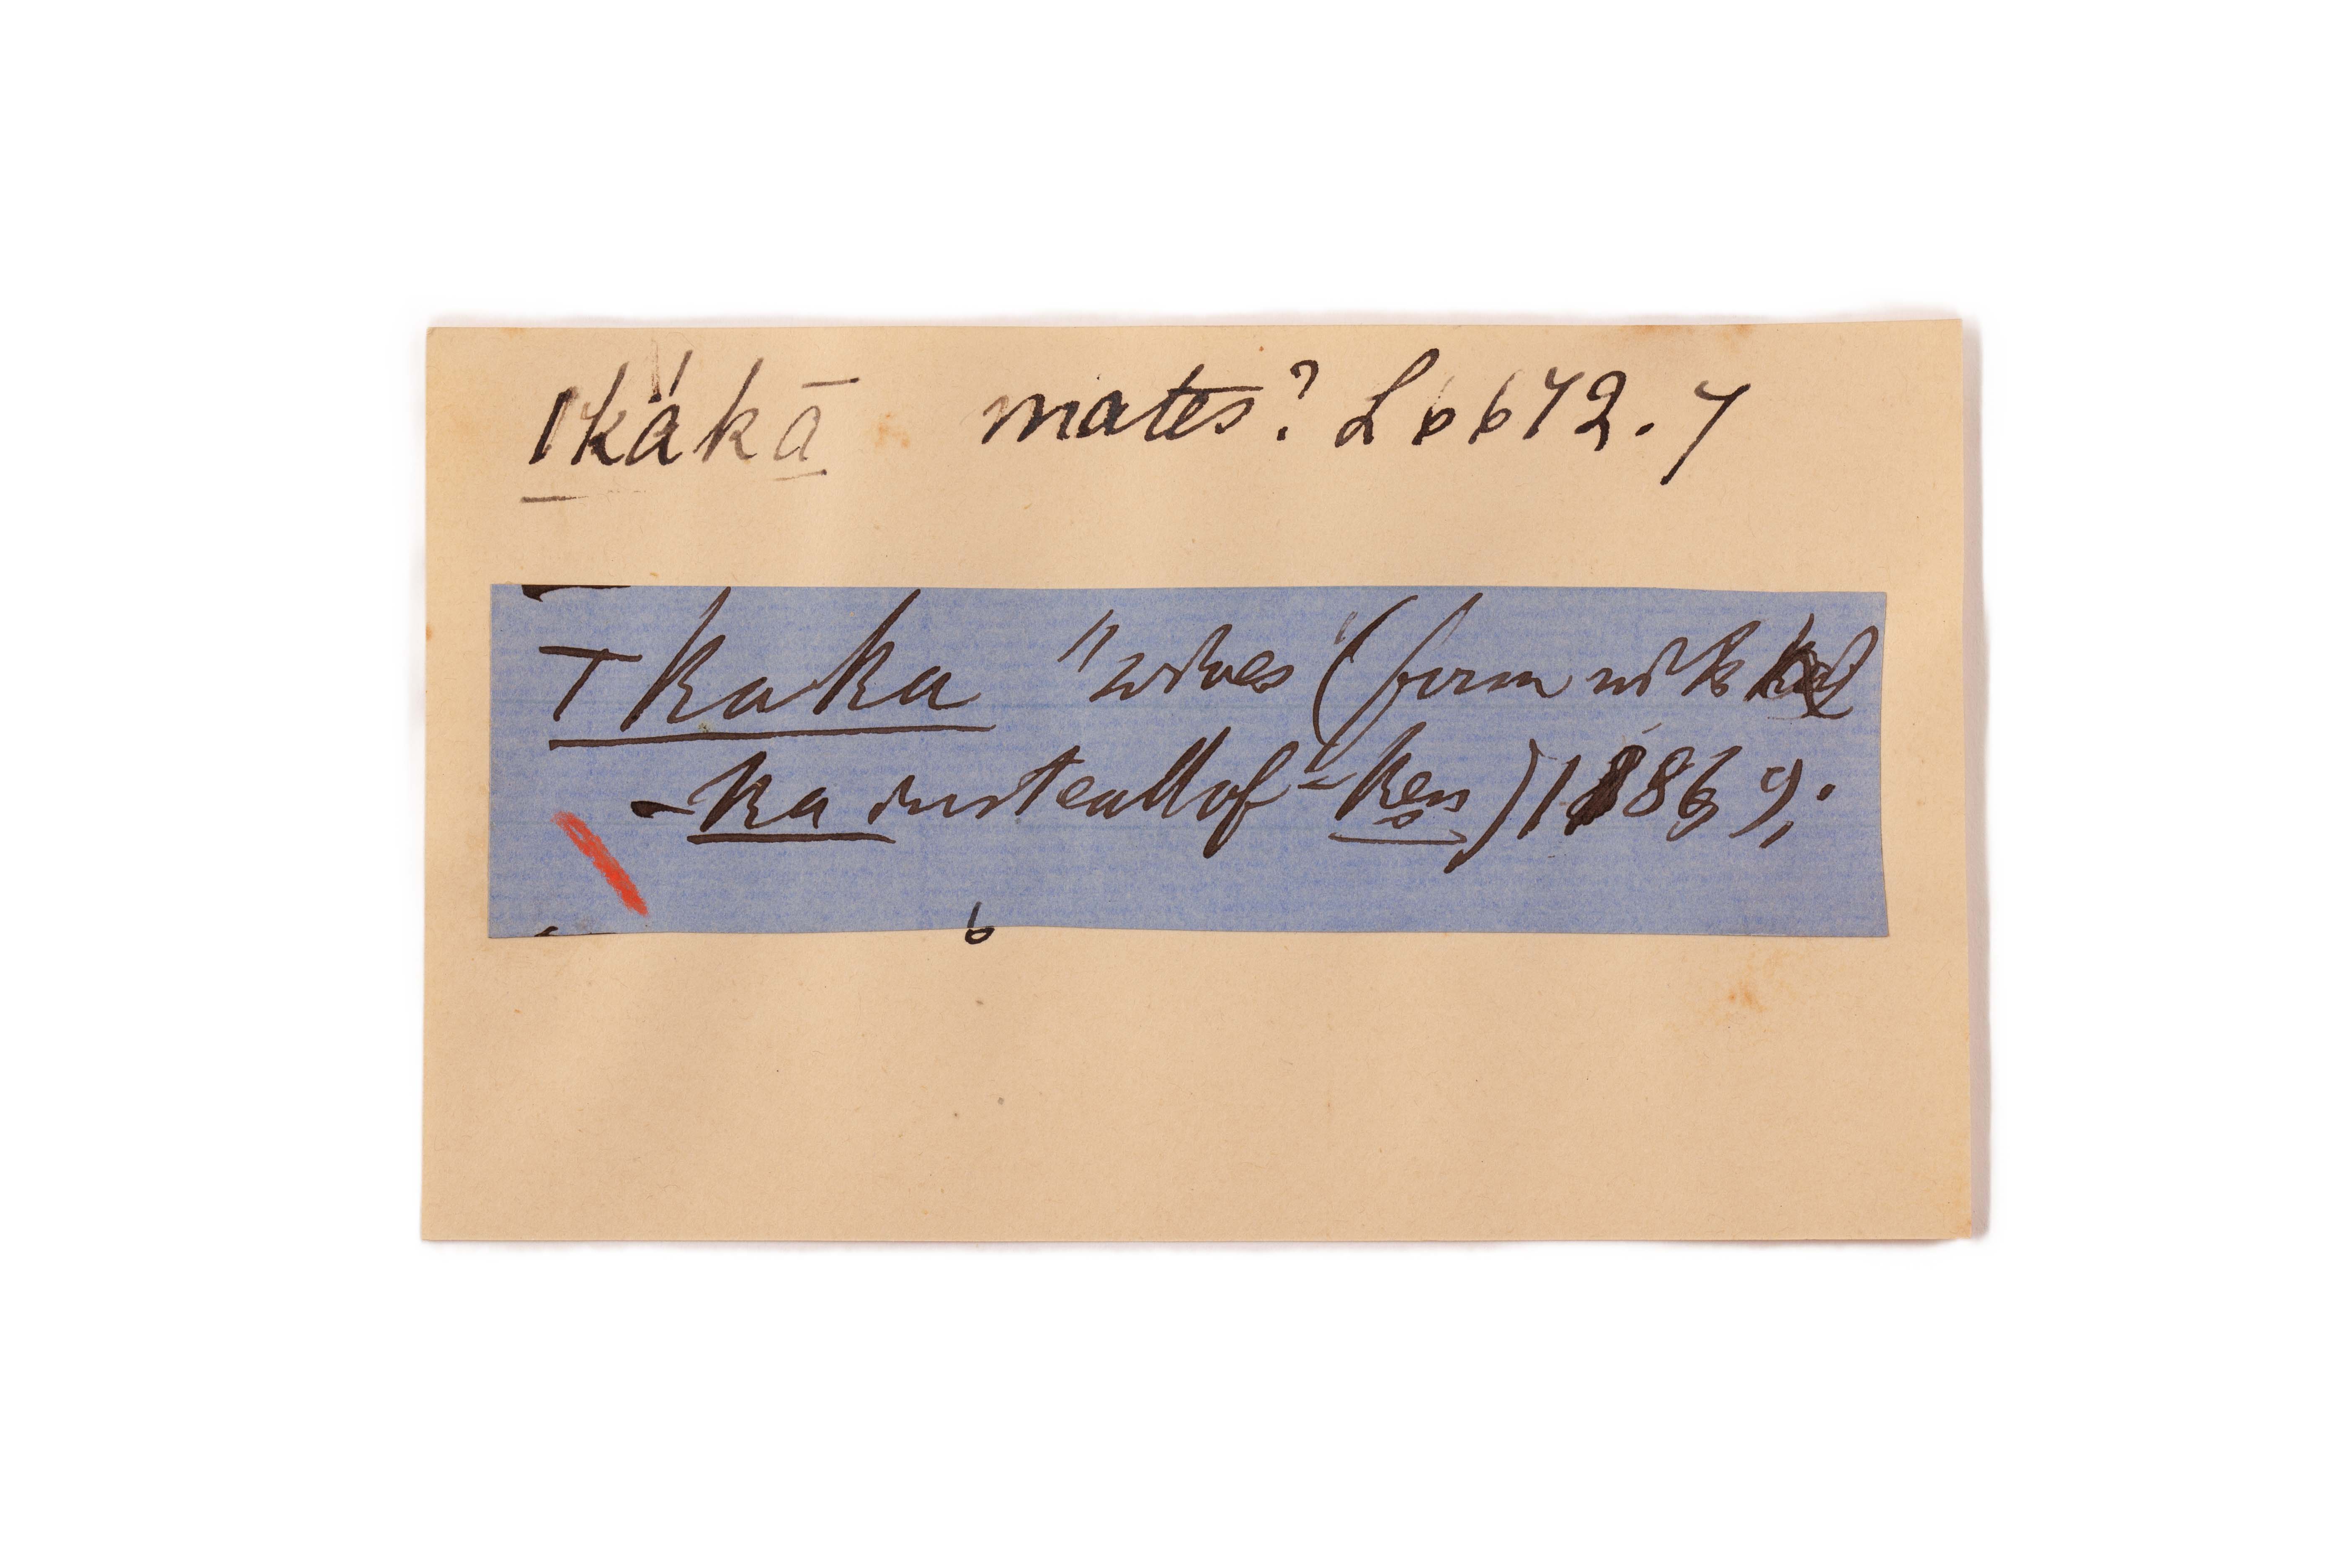 ǀkákā mates? L b 6672.7
ǀkaka "wives" (form with
-ka instead of -ken) 11869;